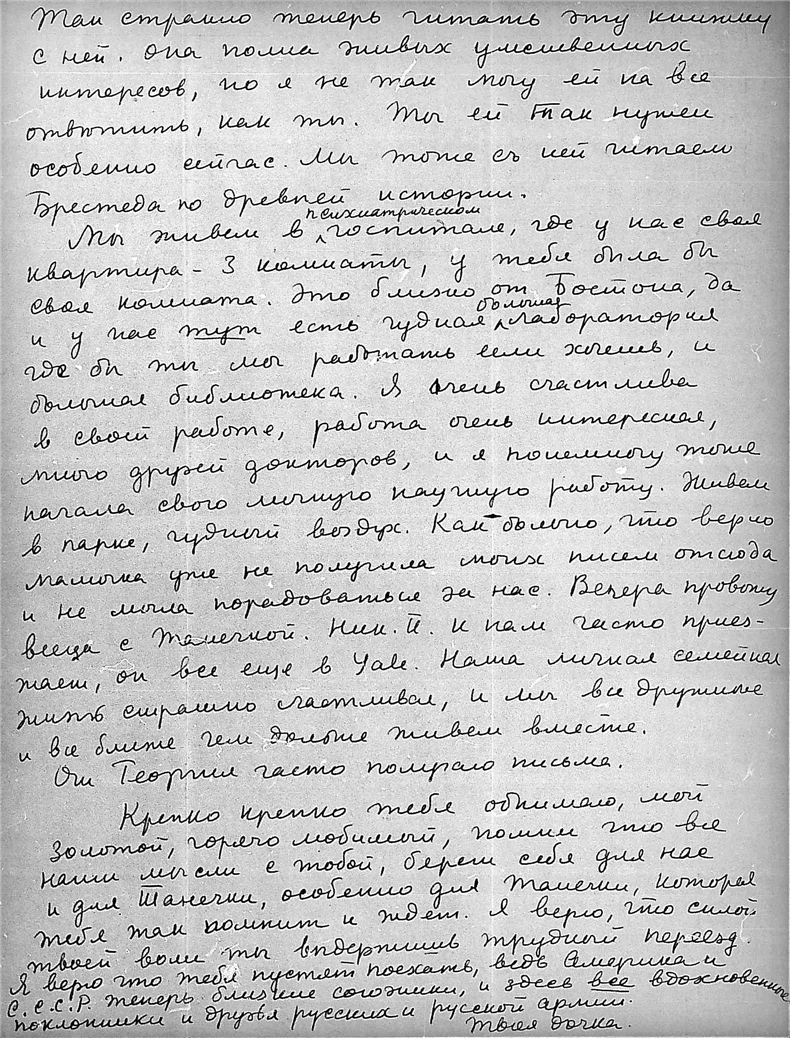 Так странно теперь читать эту книжку
с ней. Она полна живых умственных
интересов, но я не так могу ей на все
отвѣтить, как ты. Ты ей так нужен
особенно сейчас. Мы тоже съ ней читаем
Брестеда по древней истории.
психиатрическом
Мы живем в госпитале, где у нас своя
квартира – 3 комнаты, у тебя была бы
своя комната. Это близко от Бостона, да
большая
и у нас тут есть чудная лаборатория
где бы ты мог работать если хочешь, и
большая библиотека. Я очень счастлива
в своей работе, работа очень интересная,
много друзей докторов, и я понемногу тоже
начала свою личную научную работу. Живем
в парке, чудный воздух. Как больно, что верно
мамочка уже не получила моих писем отсюда
и не могла порадоваться за нас. Вечера провожу
всегда с Танечкой. Ник. И. к нам часто приез-
жает, он все еще в Yale. Наша личная семейная
жизнь страшно счастливая, и мы все дружные
и все ближе чем дольше живем вместе.
От Георгия часто получаю письма.
Крепко крепко тебя обнимаю, мой
золотой, горячо любимый, помни что все
наши мысли с тобой, береги себя для нас
и для Танечки, особенно для Танечки, которая
тебя так помнит и ждет. Я верю, что силой
твоей воли ты выдержишь трудный переезд.
Я верю что тебя пустят поехать, ведь Америка и
С.С.С.Р. теперь близкие союзники, и здесь все вдохновенные
поклонники и друзья русских и русской армии.
Твоя дочка.